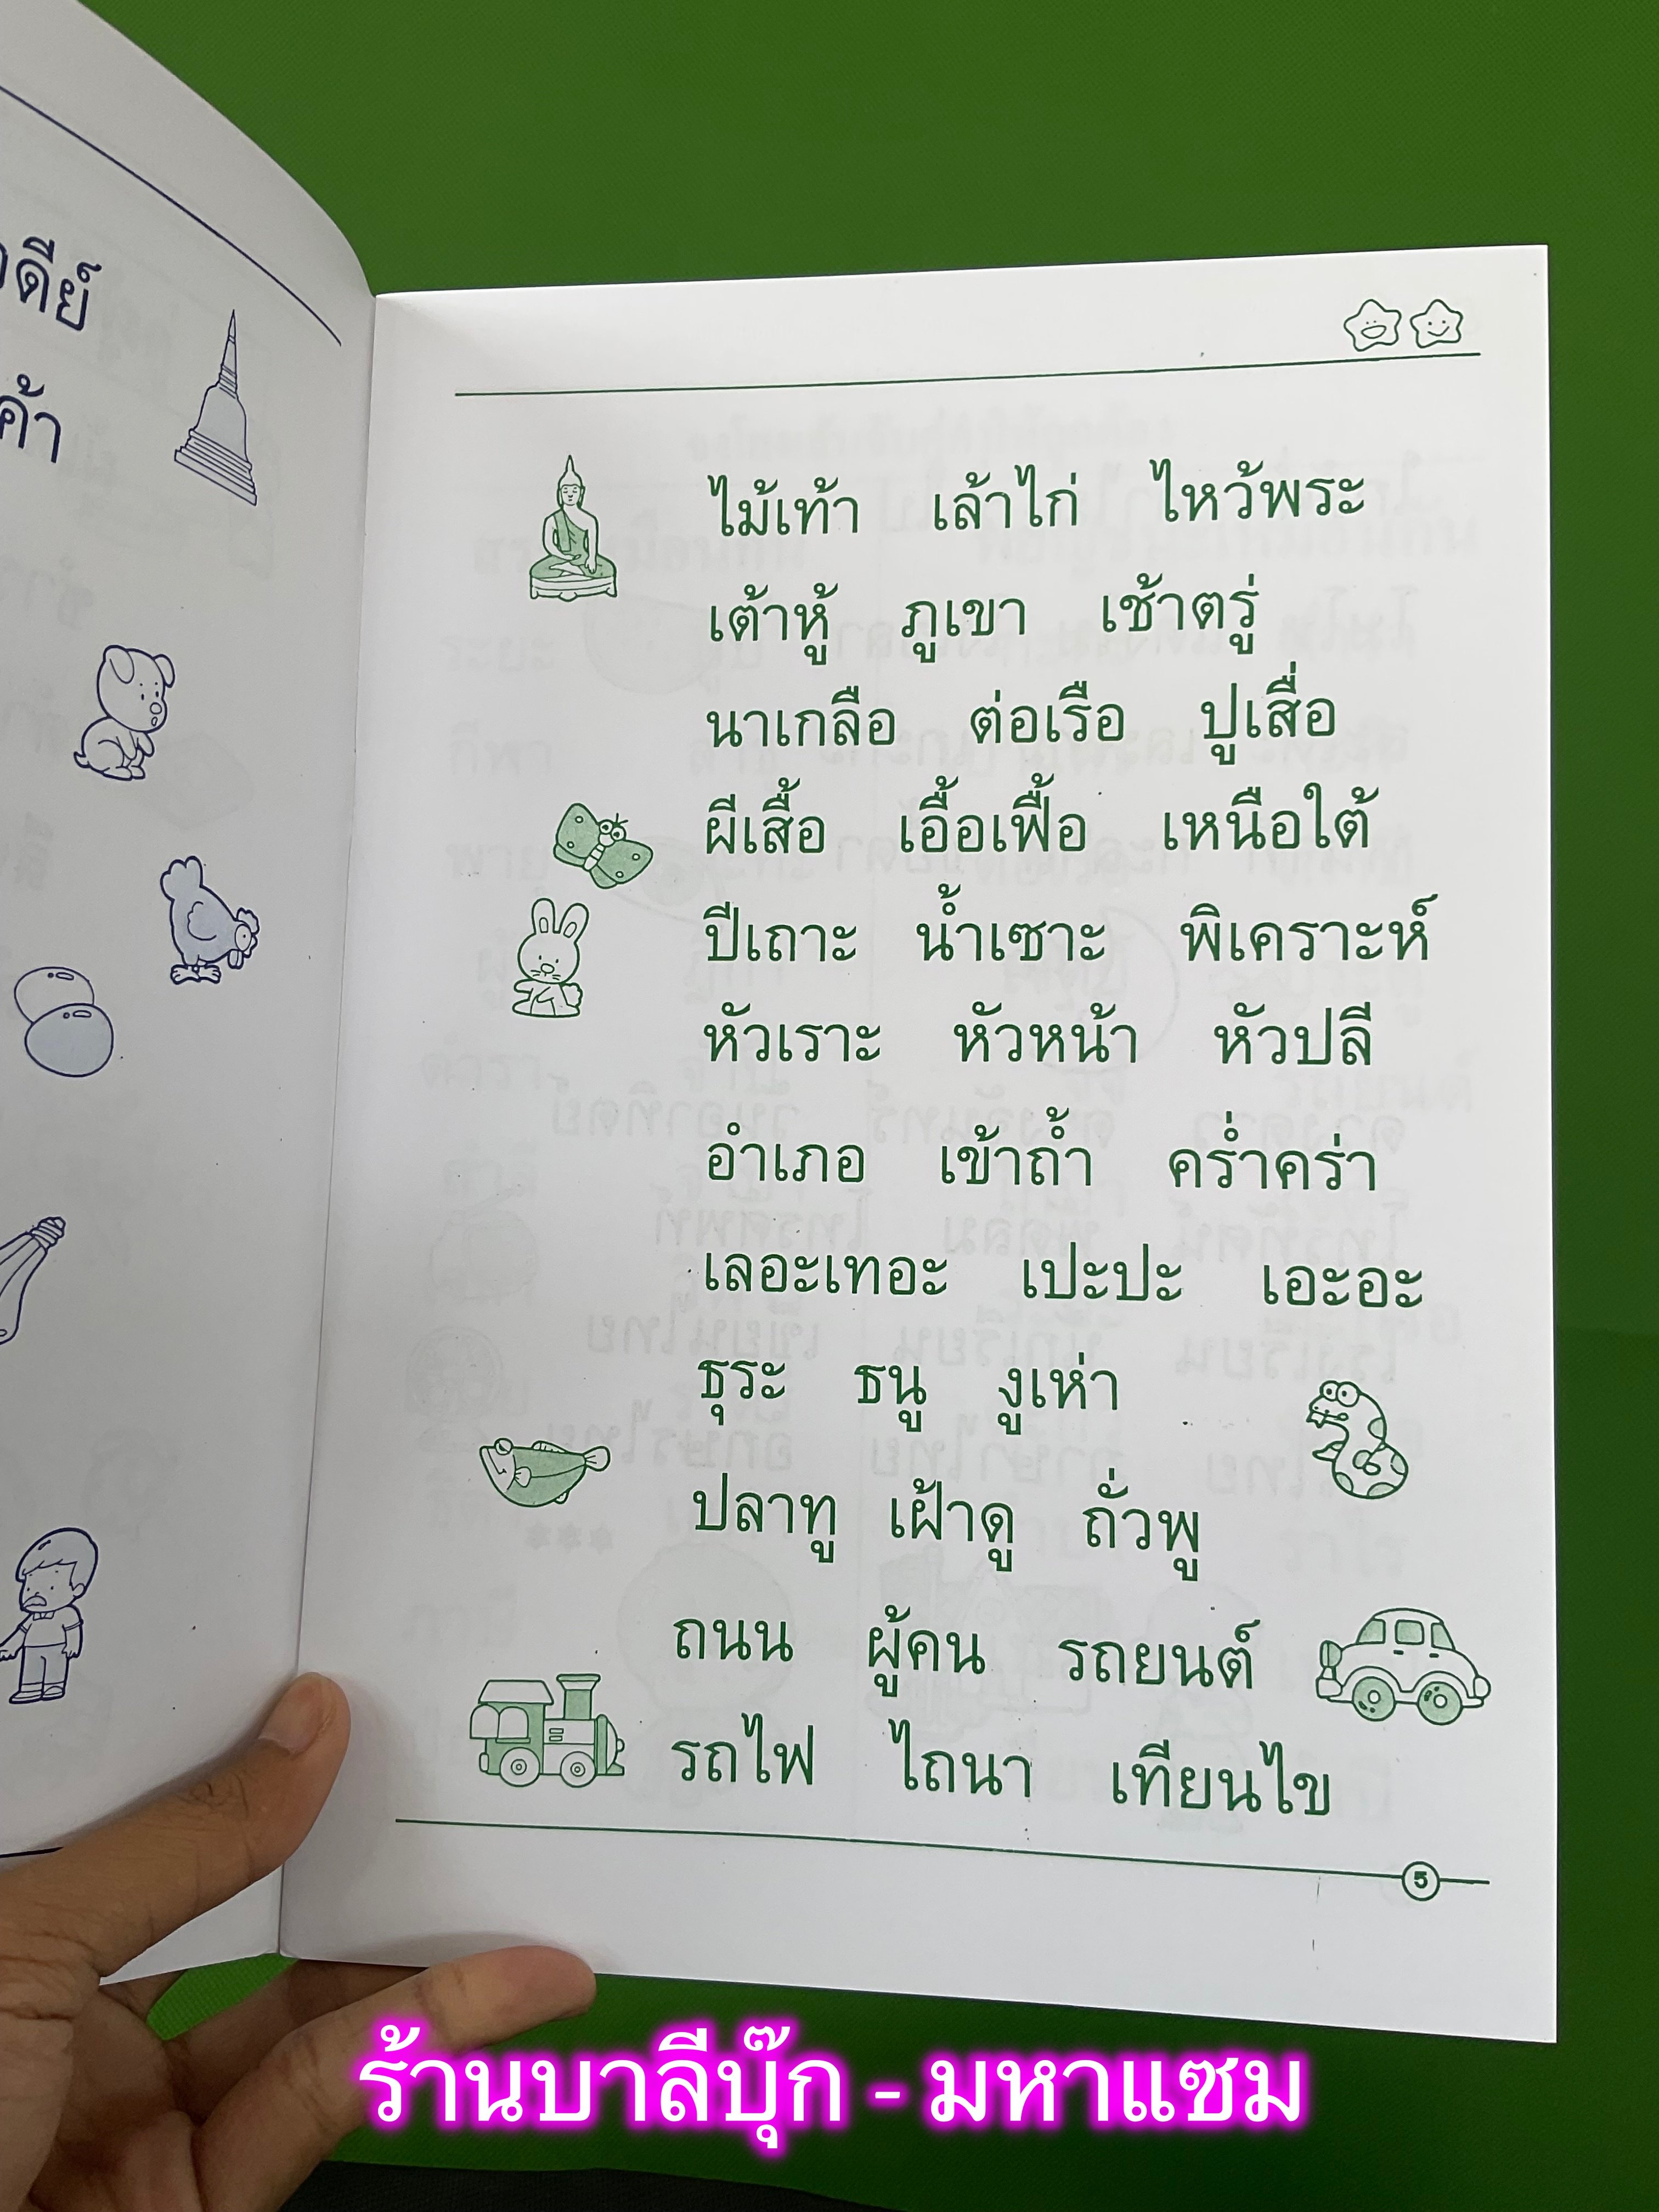 ค้า
ไม้เท้า เล้าไก่ ไหว้พระ
เต้าหู้ ภูเขา เช้าตรู่
นาเกลือ ต่อเรือ ปูเสื่อ
ผีเสื้อ เอื้อเฟื้อ เหนือใต้
ปีเถาะ น้ำเซาะ พิเคราะห์
หัวเราะ หัวหน้า หัวปลี
อำเภอ เข้าถ้ำ คร่ำคร่า
เลอะเทอะ เปะปะ เอะอะ
ธุระ ธนู งูเห่า
ปลาทู เฝ้าดู ถั่วพู
ถนน ผู้คน รถยนต์
รถไฟ ไถนา เทียนไข
5
ร้านบาลีบุ๊ก - มหาแซม